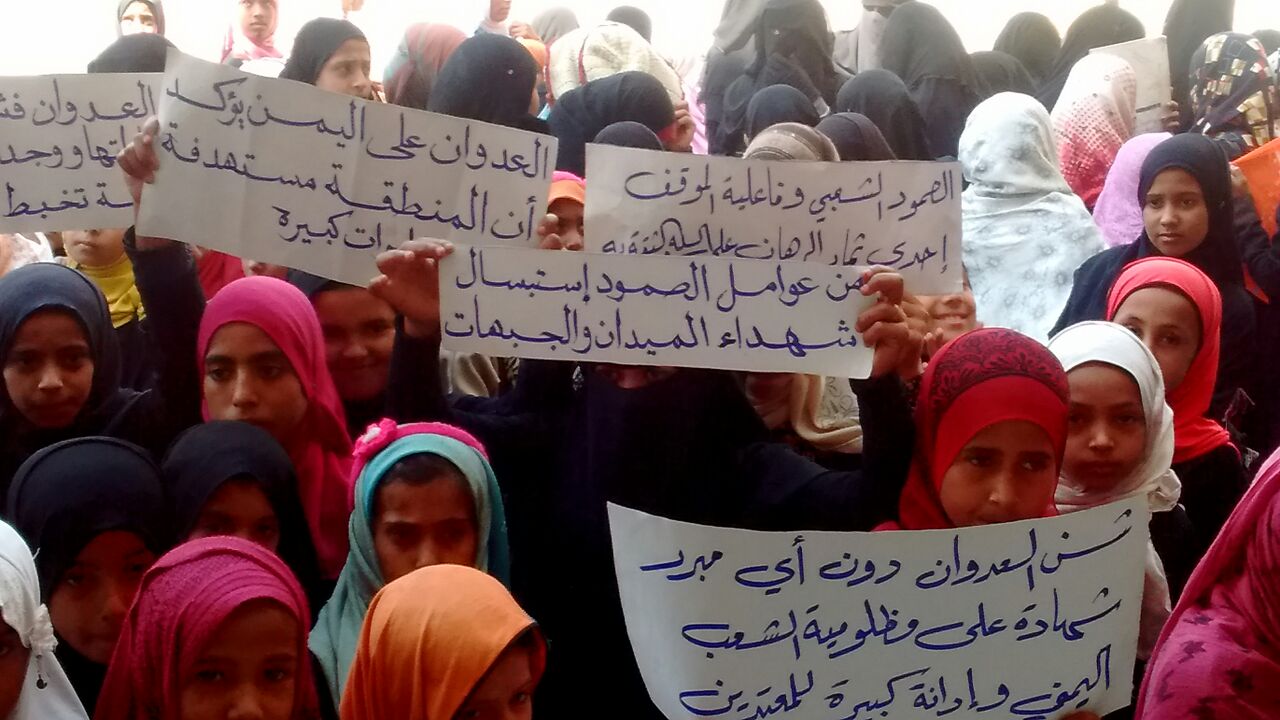 العدوان
العدوان على اليمن يؤكد
أن المنطقة مستهدفة
كبيرة
الصمود الشعبي وفاعلية الموقف
إحدى ثمار الرهان على الله
من عوامل الصمود إستبسال
شهداء الميدان والجبهات
شن العدوان دون أي مبرر
شهادة على مظلومية الشعب
اليمني وإدانة كبيرة للمعتدين